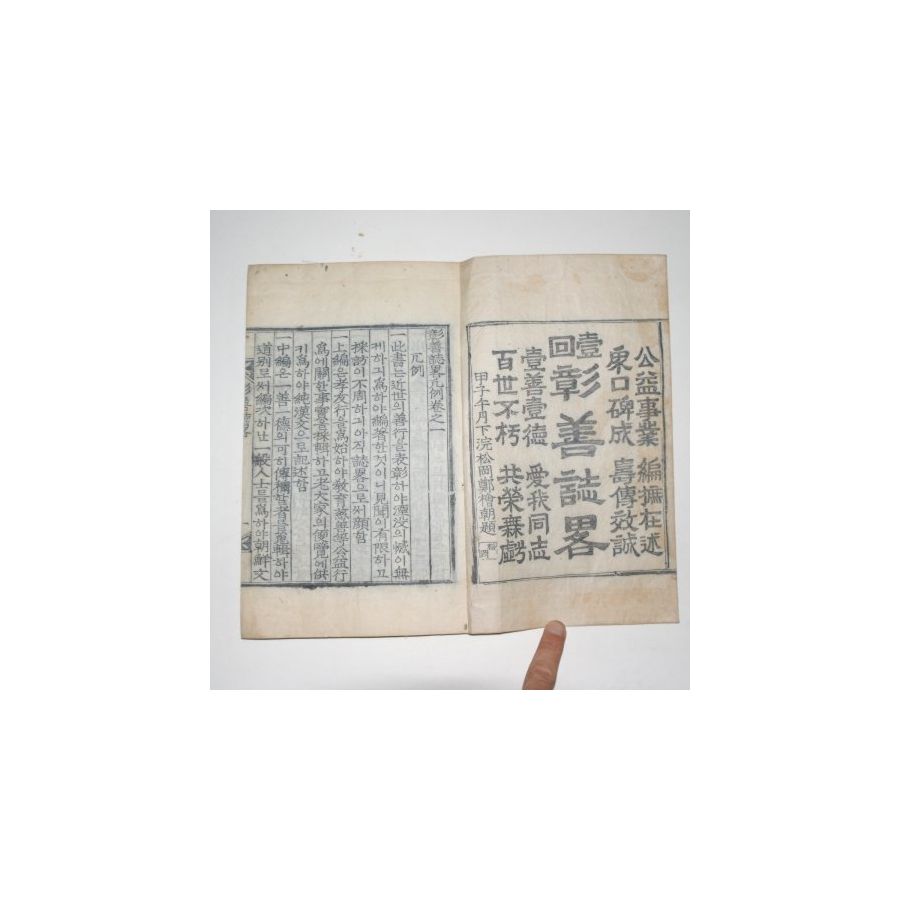 公益事業 編摭在述
東口碑成 壽傳效誠
壹回彰善誌畧
壹善壹德 愛我同志
百世不朽 共榮無虧
甲子年月下浣松岡鄭檜朝題
彰善誌畧凡例卷之一
凡例
一此書는近世의善行을表彰하야湮沒의憾이無
케하긔爲하야編著한것이니見聞이有限하고
採訪이不周하긔아직誌畧으로써顔함
一上編은孝友行을爲始하야敎育慈善學公益行
爲에關한事實을採輯하고老大家의便覽에供
키爲하야純漢文으로記述함
一中編은一善一德의可히傳播할者를蒐輯하야
道別로써編次하난一般人士를爲하야朝鮮文